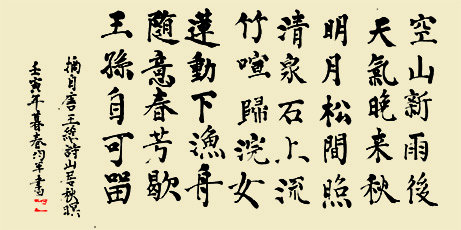 空山新雨後
天氣晚来秋
明月松間照
清泉石上流
竹喧歸浣女
蓮動下漁舟
随意春芳歇
王孫自可留
摘自唐王維詩山居秋暝
壬寅年暮春均军書